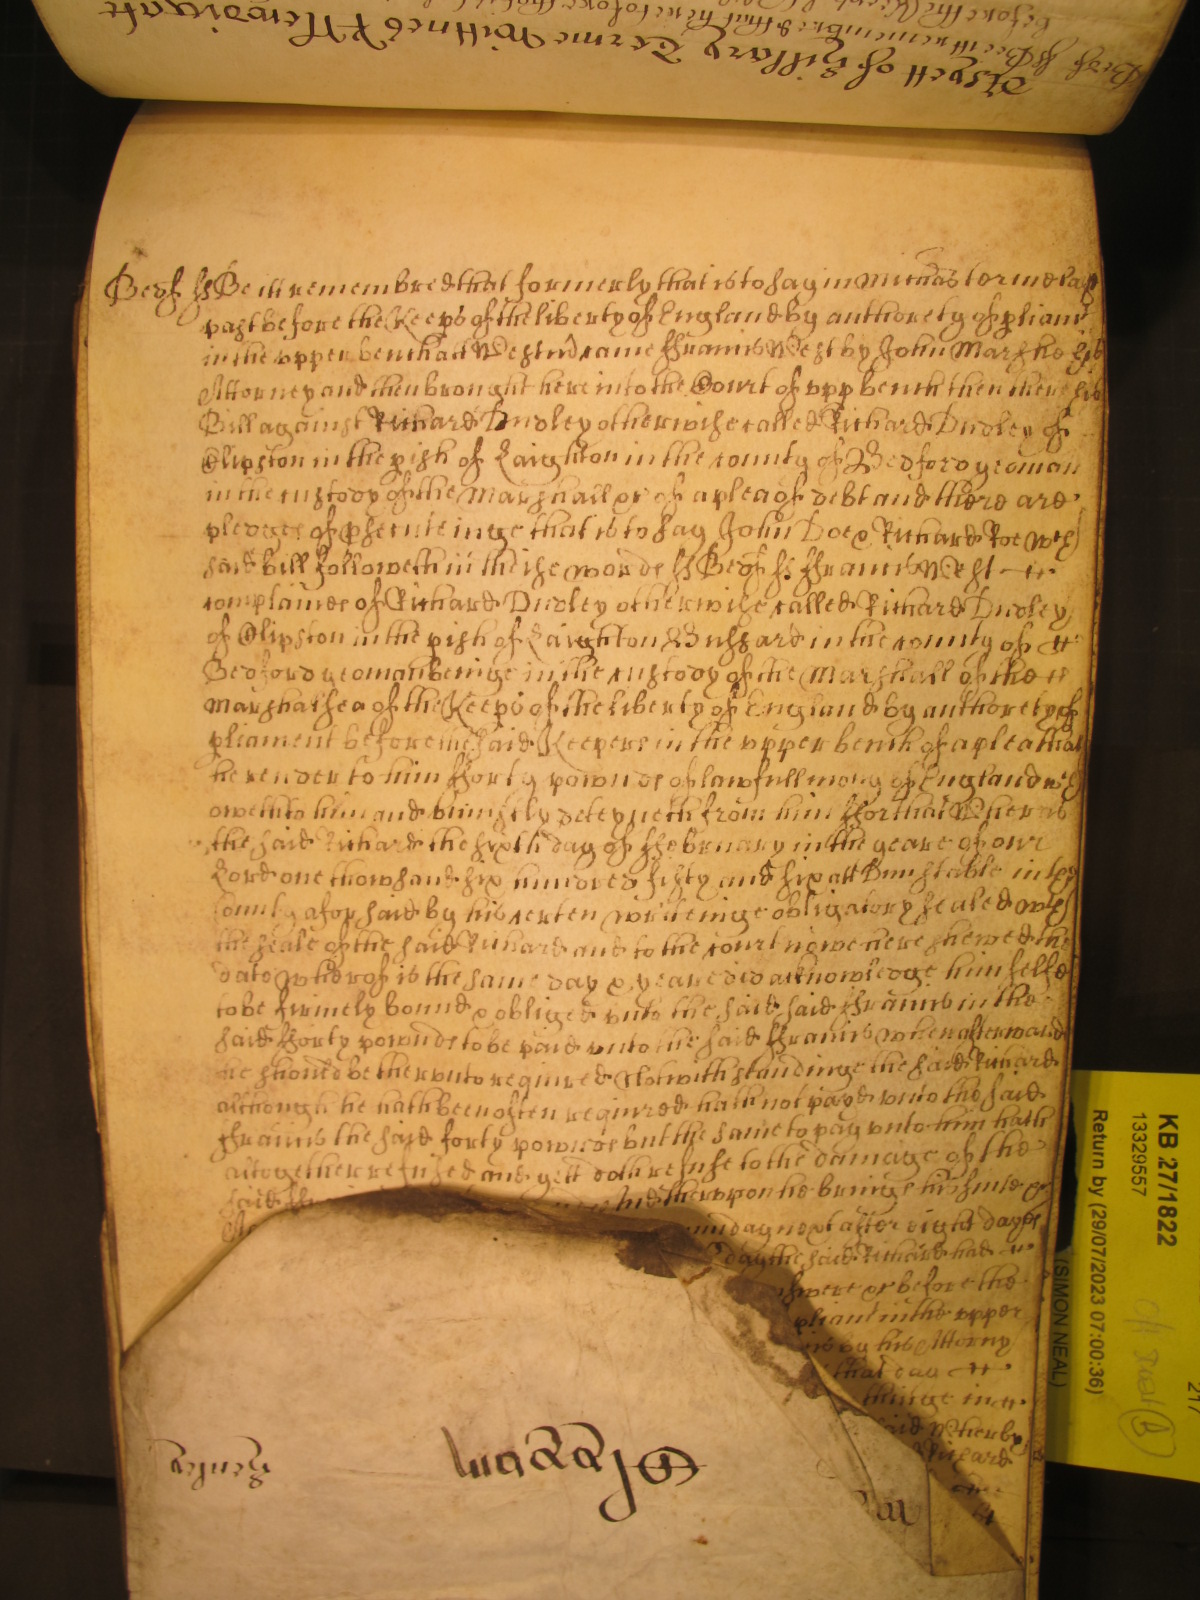 Yett of Hillary Terme Wittnes R Newdigate
Bedf ss Be itt remembred that heretofore that is
before the
Bedf ss Be itt remembred that formerly that is to say in Michas terme last
past before the Keeps of the liberty of England by authorety of pliamt
in the upper bench att Westm̃ came Ffrancis West by John Marshe his
Attorney and then brought here into the Court of upp bench then there his
Bill against Richard Dudley otherwise called Richard Dudley of
Clipston in the pish of Laighton in the county of Bedford yeoman
in the custody of the Marshall &c of a plea of debt and there are
pledges of psecuteinge that is to say John Doe & Richard Roe wch
said bill followeth in theise words ss Bedf ss Ffrancis West
complaines of Richard Dudley otherwise called Richard Dudley
of Clipston in the pish of Laighton Bussard in the county of
Bedford yeoman beinge in the custody of the Marshall of the
Marshalsea of the Keeps of the liberty of England by authorety of
pliament before the said Keepers in the upper bench of a plea that
he render to him fforty pownds of lawfull mony of England wch
oweth to him and uniustly deteyneth from him Ffor that Wheras
the said Richard the sixth day of Ffebruary in the yeare of our
Lord one thowsand six hundred fifty and six att Dunstable in the
County aforsaid by his certen writeinge obligatory sealed wth
the seale of the said Richard and to the court nowe here shewed the
date wherof is the same day & yeare did acknowledge himselfe
to be firmely bound & obliged unto the said said Ffrancis in the
said fforty pownds to be paid unto the said Ffrancis when afterward
he should be therunto required Notwithstandinge the said Richard
although he hath been often required hath not payd unto the said
Ffrancis the said forty pownds but the same to pay unto him hath
altogether refused and yett doth refuse to the damage of the
said Ff and therupon he bringe his suite &c
unday next after eight dayes
day the said Richard had
swere &c before the
pliamt in the upper
is by his Attorny
that day
thinge in
said Wherby
Richard
Glynn
KB 27/1822
13329557
Return by (29/07/2023 07:00:36)
(SIMON NEAL)
217